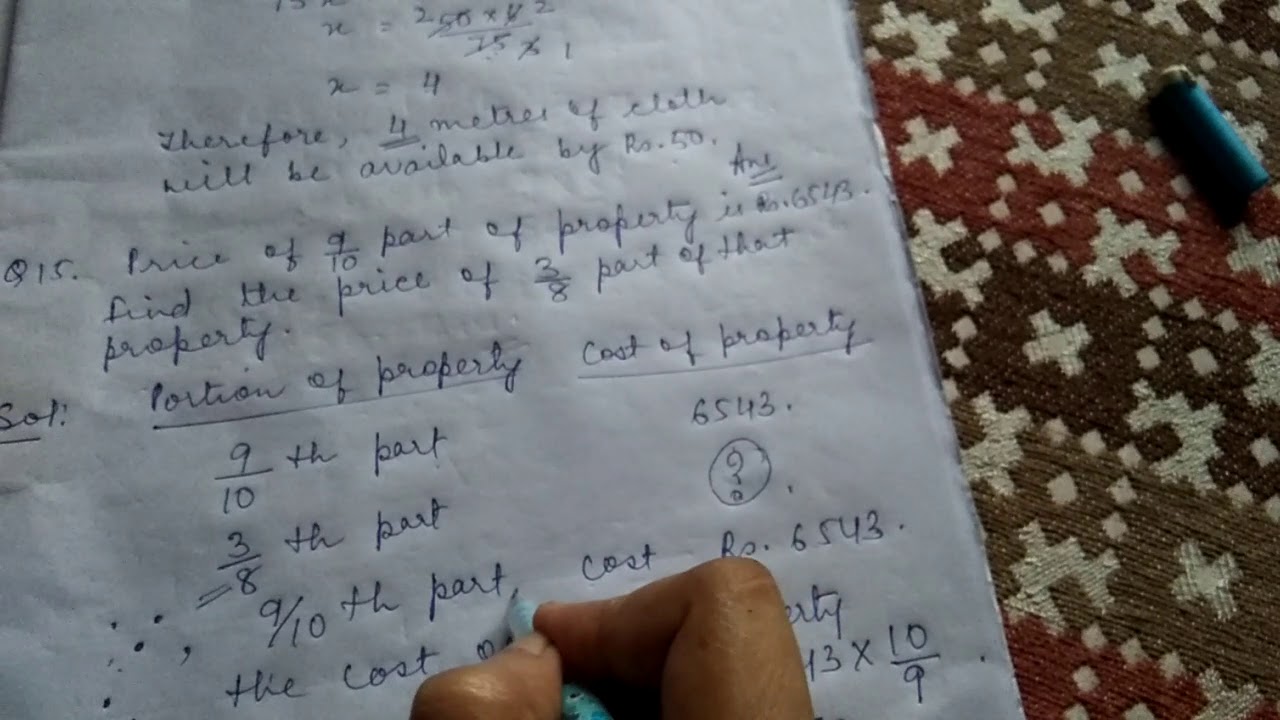 x = 2 50 × 8 2
75 3 1
x = 4
Therefore, 4 metres of cloth
will be available by Rs. 50.
Ans
Q15. Price of 9/10 part of property is Rs. 6543.
find the price of 3/8 part of that
property.
Sol: Portion of property Cost of property
9/10 th part 6543.
3/8 th part ?
∴, 9/10 th part, cost Rs. 6543.
∴ the cost erty
43 × 10/9.